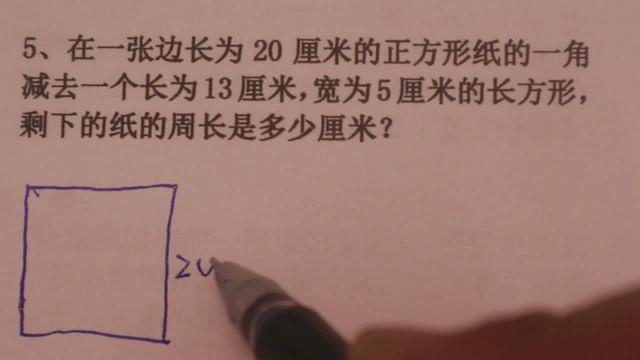 5、在一张边长为 20 厘米的正方形纸的一角
减去一个长为 13 厘米，宽为 5 厘米的长方形，
剩下的纸的周长是多少厘米？
20